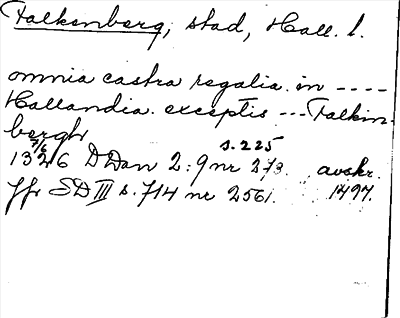 Falkenberg, stad, Hall. l.
omnia castra regalia in ----
Hallandia exceptis --- Falkin-
bergh
7/6 s. 225
1326 DDan 2:9 nr 273. avskr.
Jfr SD III s. 714 nr 2561. 1497.